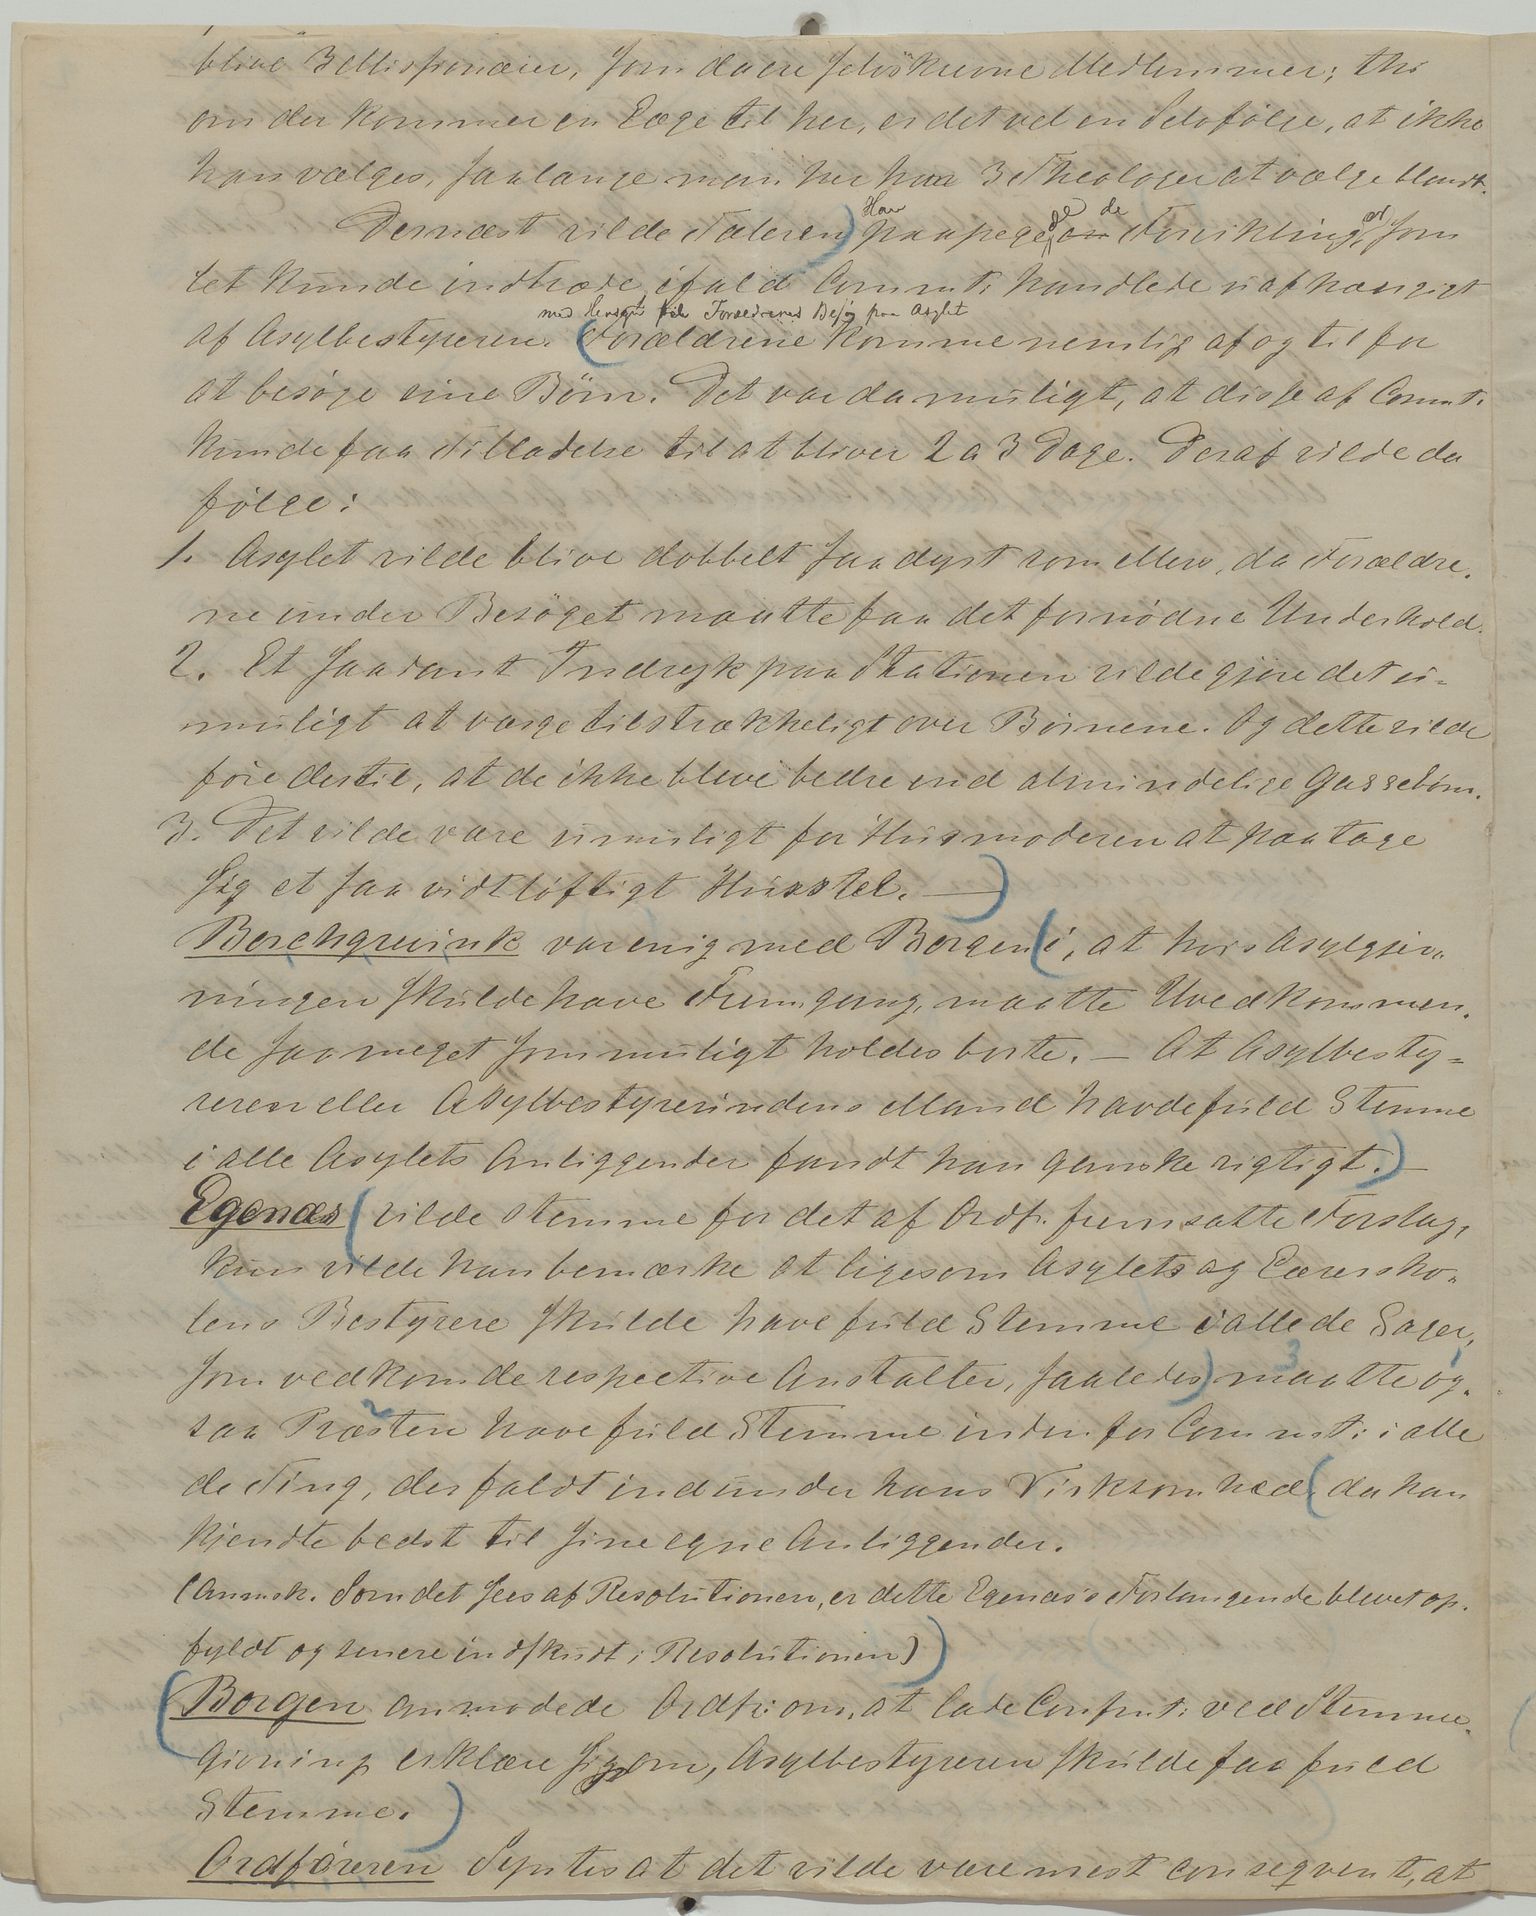 blive 3 Missionærer, som da ere selvskrevne Medlemmer; thi
om der kommer en Læge til her, er det vel en Selvfølge, at ikke
han vælges, saalænge man her har 3 Theologer at vælge blandt.
Dernæst vilde Taleren) Han paapege de en Forvikling, er som
let kunde indtræde, ifald Commt: handlede uafhængigt
med Hensyn til Forældrenes Besøg paa Asylet
af Asylbestyreren. (Forældrene komme nemlig af og til for
at besøge sine Børn. Det var da muligt, at disse af Commt:
kunde faa Tilladelse til at bliver 2 a 3 Dage. Deraf vilde da
følge:
1. Asylet vilde blive dobbelt saa dyrt som ellers, da Forældre-
ne under Besøget maatte faa det fornødne Underhold.
2. Et saadant Indryk paa Stationen vilde gjøre det u-
muligt at vaage tilstrækkeligt over Børnene. Og dette vilde
føre dertil, at de ikke bleve bedre end almindelige Gassebørn.
3. Det vilde være umuligt for Husmoderen at paatage
sig et saa vidtløftigt Husstel. —)
Borchgrevink var enig med Borgen (i, at hvis Asylgjer-
ningen skulde have Fremgang, maatte Uvedkommen-
de saa meget som muligt holdes borte. — At Asylbesty-
reren eller Asylbestyrerindens Mand havde fuld Stemme
i alle Asylets Anliggender fandt han ganske rigtigt.) —
Egenæs (vilde stemme for det af Ordf. fremsatte Forslag,
kun vilde han bemærke at ligesom Asylets og Lærersko-
lens Bestyrere skulde have fuld Stemme i alle de Sager,
som vedkom de respective Anstalter, saaledes) maatte 3 og- 1
saa Præsten 2 have fuld Stemme inden for Commt: i alle
de Ting, der faldt ind under hans Virksomhed (da han
kjendte bedst til sine egne Anliggender.
(Anmrk. Som det sees af Resolutionen, er dette Egenæs's Forlangende blevet op-
fyldt og senere indskudt i Resolutionen))
(Borgen anmodede Ordf: om, at lade Confnt: ved Stemme-
givning erklære sig om, Asylbestyreren skulde faa fuld
Stemme.)
Ordføreren syntes at det vilde være mest conseqvent, at